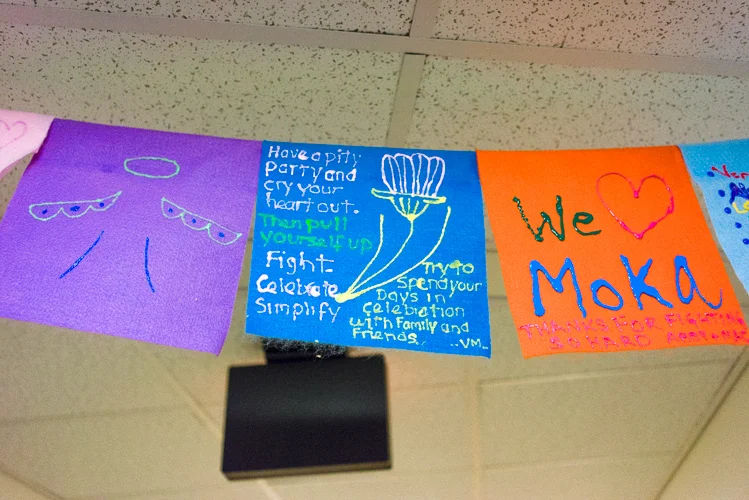 Have a pity
Party and
cry your
heart out.
Then pull
yourself up
Fight
Celebrate
Simplify
Try to
Spend your
Days in
celebration
with Family and
Friends
..VM..
We
Moka
THANKS FOR FIGHTING
SO HARD